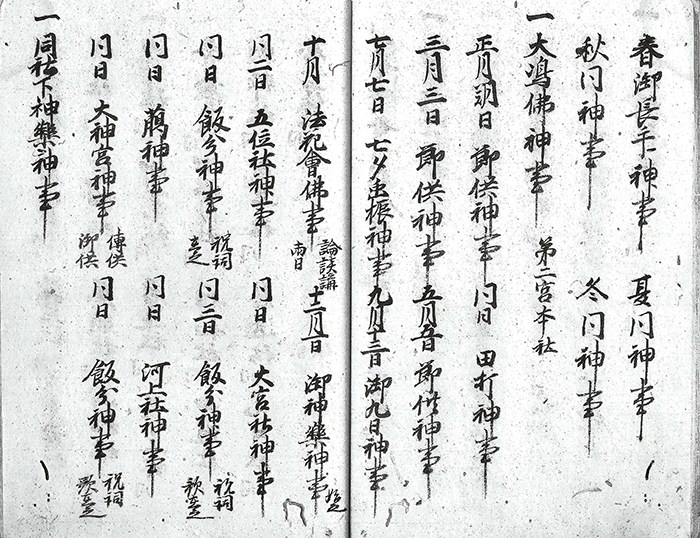 一 春御長手神事 夏同神事
秋同神事 冬同神事
一 大嶋佛神事 第二宮本社
正月朔日 節供神事 同日 田打神事
三月三日 節供神事 五月五日 節供神事
七月七日 七夕 神事 九月十三日 御九日神事
十月 法花會佛事 論談講 両日 十二月一日 御神樂神事
同二日 五位社神事 同日 大宮社神事
同日 飯分神事 祝詞 同三日 飯分神事 祝詞
同日 神事 同日 河上社神事
同日 大神宮神事 傳供 御供 同日 飯分神事 祝詞
一 同社下神樂神事